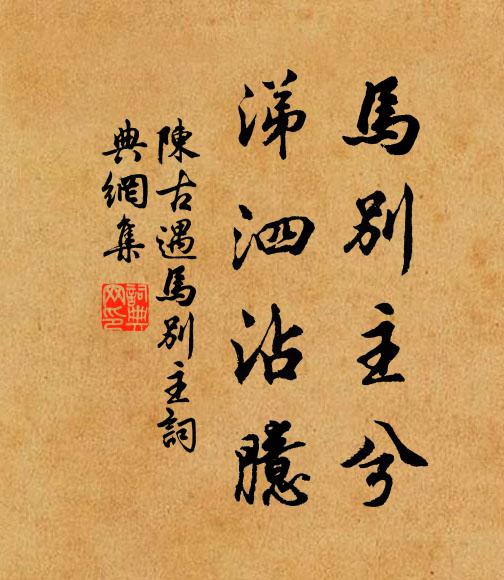 馬別主兮
涕泗沾臆
陳古遇馬別主詞
典網集
詞典網印